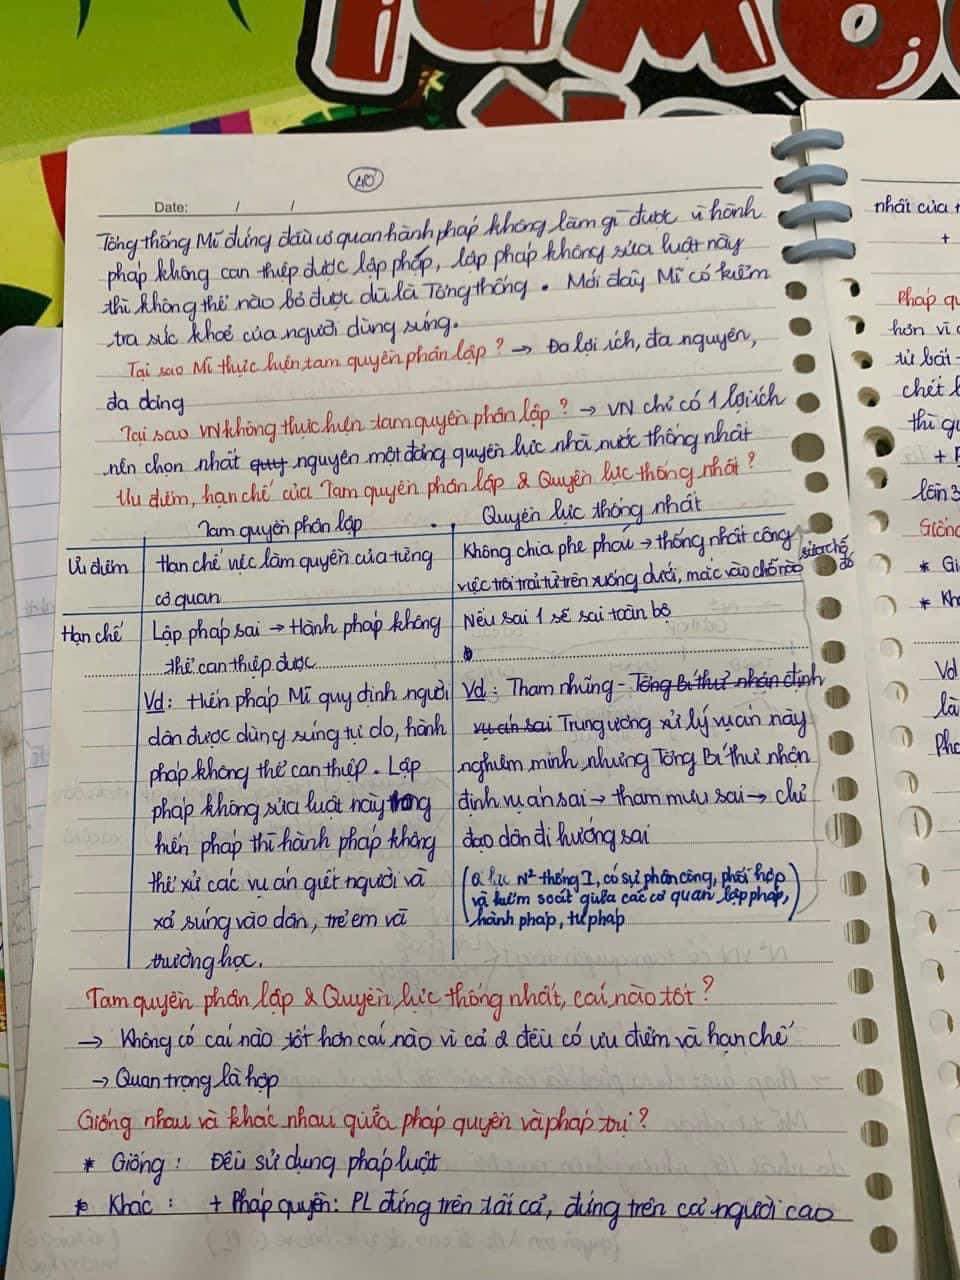 Date: / /
Tổng thống Mĩ đứng đầu cơ quan hành pháp không làm gì được vì hành
pháp không can thiệp được lập pháp, lập pháp không sửa luật này
thì không thể nào bỏ được dù là Tổng thống. Mới đây Mĩ có kiểm
tra sức khoẻ của người dùng súng.
Tại sao Mĩ thực hiện tam quyền phân lập? → Đa lợi ích, đa nguyên,
đa đảng
Tại sao VN không thực hiện tam quyền phân lập? → VN chỉ có 1 lợi ích
nên chọn nhất quy nguyên một đảng quyền lực nhà nước thống nhất
Ưu điểm, hạn chế của Tam quyền phân lập & Quyền lực thống nhất?
Tam quyền phân lập
Quyền lực thống nhất
Ưu điểm
Hạn chế việc lạm quyền của từng
cơ quan
Không chia phe phái → thống nhất công
việc trôi trải từ trên xuống dưới, mắc vào chỗ nào
sửa chỗ
đó
Hạn chế
Lập pháp sai → Hành pháp không
thể can thiệp được
Vd: Hiến pháp Mĩ quy định người
dân được dùng súng tự do, hành
pháp không thể can thiệp. Lập
pháp không sửa luật này trong
hiến pháp thì hành pháp không
thể xử các vụ án giết người và
xả súng vào dân, trẻ em và
trường học.
Nếu sai 1 sẽ sai toàn bộ
Vd: Tham nhũng - Tổng Bí thư nhận định
vụ án sai Trung ương xử lý vụ án này
nghiêm minh, nhưng Tổng Bí thư nhận
định vụ án sai → tham mưu sai → chỉ
đạo dân đi hướng sai
(Q lực N² thống I, có sự phân công, phối hợp
và kiểm soát giữa các cơ quan lập pháp,
hành pháp, tư pháp)
Tam quyền phân lập & Quyền lực thống nhất, cái nào tốt?
→ Không có cái nào tốt hơn cái nào vì cả 2 đều có ưu điểm và hạn chế
→ Quan trọng là hợp
Giống nhau và khác nhau giữa pháp quyền và pháp trị?
* Giống: Đều sử dụng pháp luật
* Khác: + Pháp quyền: PL đứng trên tất cả, đứng trên cả người cao
nhất của
+
Pháp qu
hơn vì
từ bất
chết
thì
+
lần 3
Giống
* Gi
* Kh
Vd
là
Phá